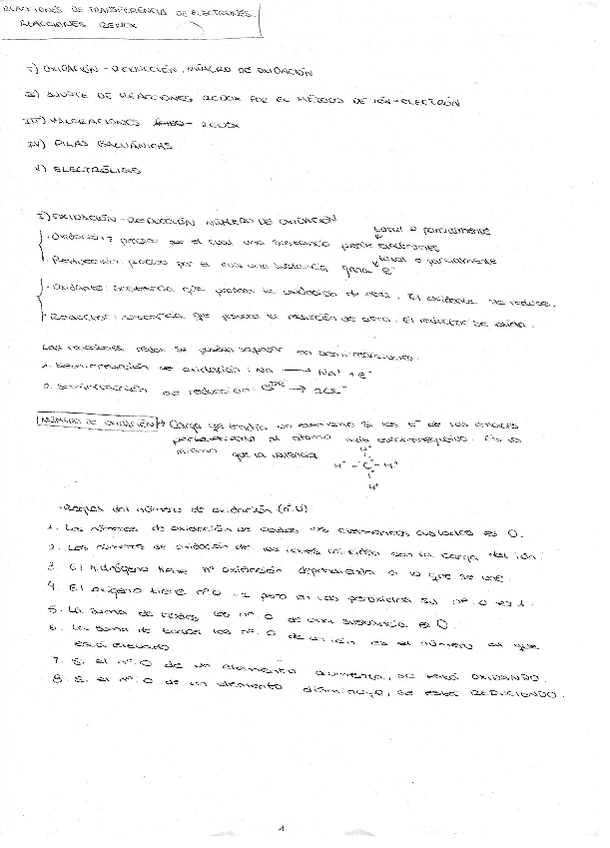 REACCIONES DE TRANSFERENCIA DE ELECTRONES.
REACCIONES REDOX
I) OXIDACIÓN - REDUCCIÓN, NÚMERO DE OXIDACIÓN
II) AJUSTE DE REACCIONES REDOX POR EL MÉTODO DE IÓN-ELECTRÓN
III) VALORACIONES REDOX
IV) PILAS GALVÁNICAS
V) ELECTRÓLISIS
I) OXIDACIÓN - REDUCCIÓN NÚMERO DE OXIDACIÓN
total o parcialmente
· Oxidación: proceso por el cual una sustancia pierde electrones
total o parcialmente
· Reducción: proceso por el cual una sustancia gana e-
· Oxidante: sustancia que produce la oxidación de otra. El oxidante se reduce.
· Reductor: sustancia que provoca la reducción de otra. El reductor se oxida.
Las reacciones redox se pueden separar en semirreacciones.
1. Semirreacción de oxidación: Na → Na+ + e-
2. Semirreacción de reducción: → 2Cl-
NÚMERO DE OXIDACIÓN → Carga que tendría un elemento si los e- de los enlaces
perteneciera al átomo más electronegativo. No es lo
mismo que la valencia
H+
H+ - C - H+
H+
· Reglas del número de oxidación (nº.O)
1. Los números de oxidación de todos los elementos aislados es 0.
2. Los números de oxidación de los iones coinciden con la carga del ión.
3. El hidrógeno tiene nº oxidación dependiendo a lo que se une.
4. El oxígeno tiene nºO -2 pero en los peróxidos su nº.O es 1.
5. La suma de todos los nº.O de una sustancia es 0.
6. La suma de todos los nº.O de un ión es el número al que
está elevado
7. Si el nº.O de un elemento aumenta, se está OXIDANDO.
8. Si el nº.O de un elemento disminuye, se está REDUCIENDO.
1